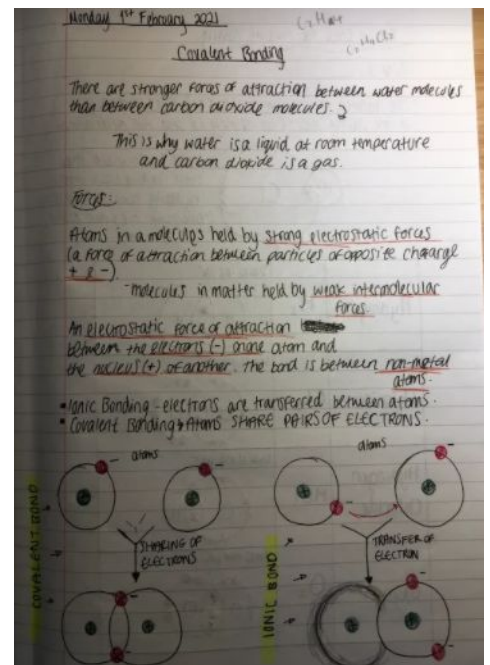 Monday 1st February 2021
Covalent Bonding
There are stronger forces of attraction between water molecules
than between carbon dioxide molecules.
This is why water is a liquid at room temperature
and carbon dioxide is a gas.
Forces:
Atoms in a molecules held by strong electrostatic forces
(a force of attraction between particles of opposite chaarge
+ & -)
-molecules in matter held by weak intermolecular
forces.
An electrostatic force of attraction
between the electrons (-) on one atom and
the nucleus (+) of another. The bond is between non-metal
atoms.
•Ionic Bonding - electrons are transferred between atoms.
•Covalent Bonding → Atoms SHARE PAIRS OF ELECTRONS.
atoms
COVALENT BOND
SHARING OF
ELECTRONS
atoms
IONIC BOND
TRANSFER OF
ELECTRON